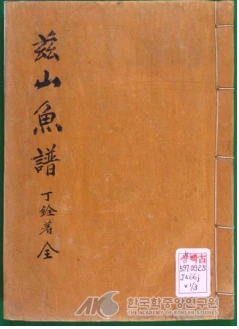 玆山魚譜
丁銓著 全
597.0928
한국학중앙연구원
THE ACADEMY OF KOREAN STUDIES